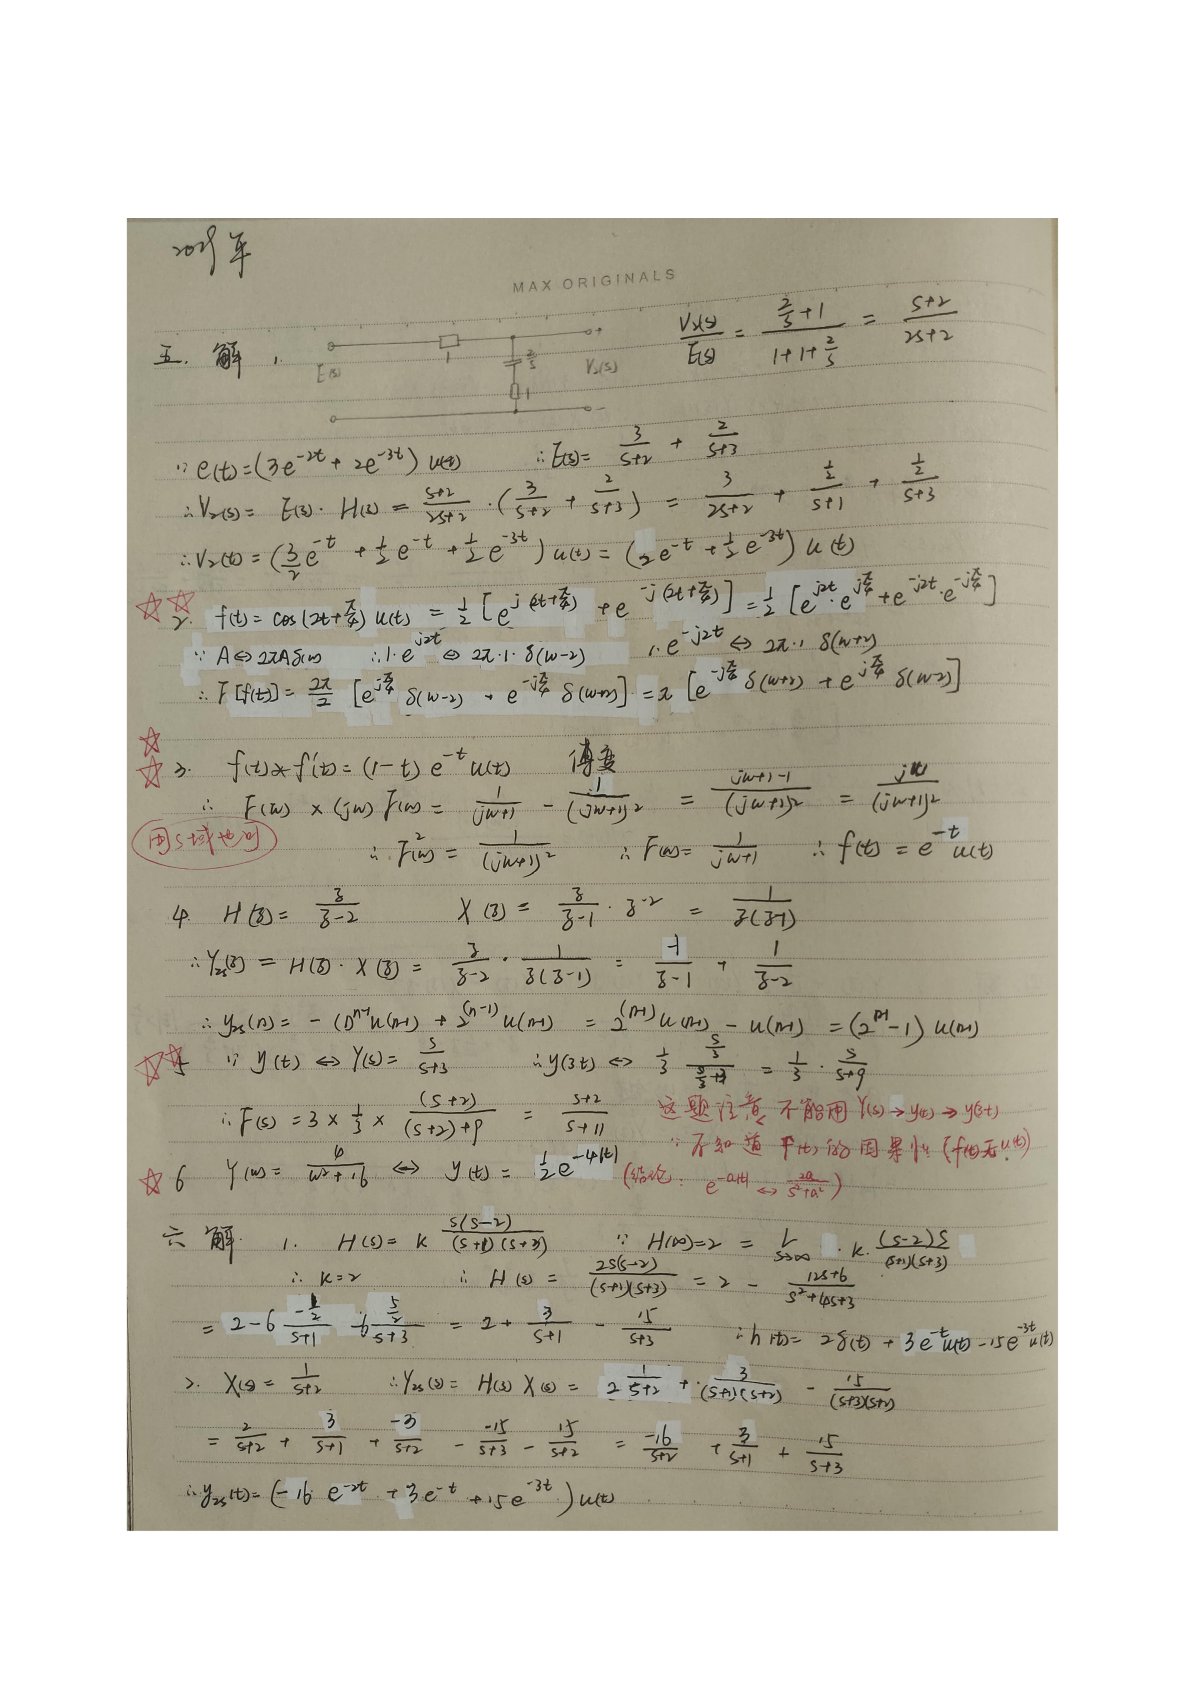 MAX ORIGINALS
五. 解 1. E(s) 1 2/s 1 V₂(s) + - V₂(s)/E(s) = (2/s+1)/(1+1+2/s) = (s+2)/(2s+2)
∵ e(t)=(3e^{-2t}+2e^{-3t}) u(t) ∴ E(s)= 3/(s+2) + 2/(s+3)
∴ V₂(s)= E(s)·H(s) = (s+2)/(2s+2) ·(3/(s+2) + 2/(s+3)) = 3/(2s+2) + (1/2)/(s+1) + (1/2)/(s+3)
∴ V₂(t) = (3/2 e^{-t} + 1/2 e^{-t} + 1/2 e^{-3t}) u(t) = (2e^{-t} + 1/2 e^{-3t}) u(t)
☆☆ 2. f(t) = cos(2t+π/4) u(t) = 1/2 [e^{j(2t+π/4)} + e^{-j(2t+π/4)}] = 1/2 [e^{j2t}·e^{jπ/4} + e^{-j2t}·e^{-jπ/4}]
∵ A ⇔ 2πAδ(w) ∴ 1·e^{j2t} ⇔ 2π·1·δ(w-2) 1·e^{-j2t} ⇔ 2π·1 δ(w+2)
∴ F[f(t)] = 2π/2 [e^{jπ/4} δ(w-2) + e^{-jπ/4} δ(w+2)] = π [e^{-jπ/4} δ(w+2) + e^{jπ/4} δ(w-2)]
☆☆ 3. f(t)*f'(t) = (1-t) e^{-t} u(t) 傅变
∴ F(w) × (jw) F(w) = 1/(jw+1) - 1/(jw+1)² = (jw+1-1)/(jw+1)² = jw/(jw+1)²
用s域也可 ∴ F²(w) = 1/(jw+1)² ∴ F(w) = 1/(jw+1) ∴ f(t) = e^{-t} u(t)
4. H(z) = z/(z-2) X(z) = z/(z-1) · z^{-2} = 1/(z(z-1))
∴ Yzs(z) = H(z)·X(z) = z/(z-2) · 1/(z(z-1)) = -1/(z-1) + 1/(z-2)
∴ yzs(n) = -(1)^{n-1} u(n-1) + 2^{(n-1)} u(n-1) = 2^{(n-1)} u(n-1) - u(n-1) = (2^{n-1}-1) u(n-1)
☆☆ 5 ∵ y(t) ⇔ Y(s) = s/(s+3) ∴ y(3t) ⇔ 1/3 (s/3)/(s/3+3) = 1/3 · s/(s+9)
∴ F(s) = 3 × 1/3 × (s+2)/((s+2)+9) = (s+2)/(s+11) 这题注意, 不能用 Y(s)→y(t)→y(3t)
∵ 不知道 F(t) 的因果性 (f(t)无u(t))
☆ 6 Y(w) = 4/(w²+16) ⇔ y(t) = 1/2 e^{-4|t|} (结论: e^{-a|t|} ⇔ 2a/(s²+a²))
六 解 1. H(s) = K s(s-2)/((s+1)(s+3)) ∵ H(∞)=2 = L s→∞ · K·(s-2)s/((s+1)(s+3))
∴ K=2 ∴ H(s) = 2s(s-2)/((s+1)(s+3)) = 2 - (12s+6)/(s²+4s+3)
= 2-6 (-1/2)/(s+1) -6 (5/2)/(s+3) = 2 + 3/(s+1) - 15/(s+3) ∴ h(t) = 2δ(t) + 3e^{-t}u(t) - 15e^{-3t}u(t)
2. X(s) = 1/(s+2) ∴ Yzs(s) = H(s) X(s) = 2 1/(s+2) + 3/((s+1)(s+2)) - 15/((s+3)(s+2))
= 2/(s+2) + 3/(s+1) + -3/(s+2) - -15/(s+3) - 15/(s+2) = -16/(s+2) + 3/(s+1) + 15/(s+3)
∴ yzs(t) = (-16 e^{-2t} + 3e^{-t} + 15e^{-3t}) u(t)